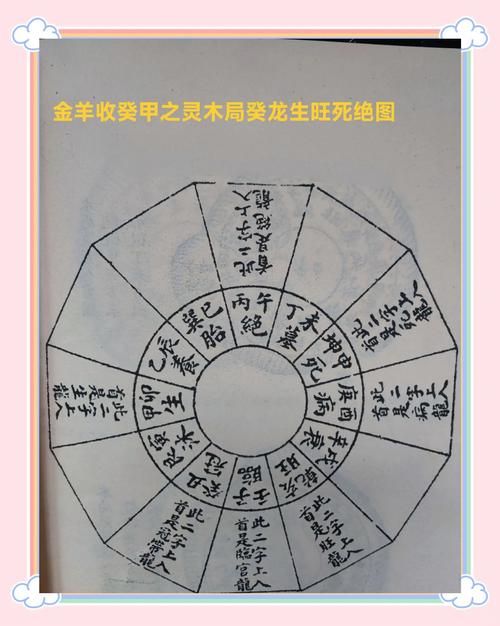 金羊收癸甲之灵木局癸龙生旺死绝图
此二字上入
首是絕龍
此二字上入
首是死龍
此二字上入
首是病龍
此二字上入
首是旺龍
此二字上入
首是臨官龍
此二字上入
首是冠帶龍
此二字上入
首是生龍
丙午
絕
丁未
墓
坤申
死
庚酉
病
辛戌
衰
乾亥
旺
壬子
臨
癸丑
冠
沐
甲卯
生
乙辰
養
巽巳
胎